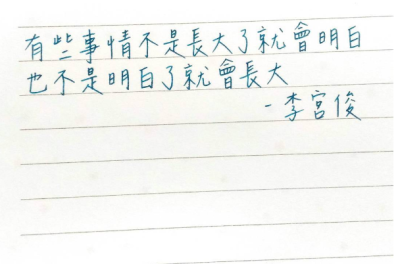 有些事情不是長大了就會明白
也不是明白了就會長大
-李宮俊